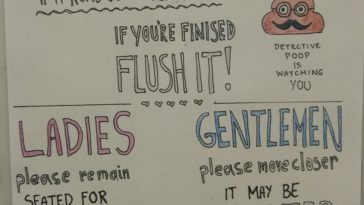 IF YOU'RE FINISED
FLUSH IT!
DETECTIVE
POOP
IS
WATCHING
YOU
LADIES
please remain
SEATED FOR
GENTLEMEN
please move closer
IT MAY BE